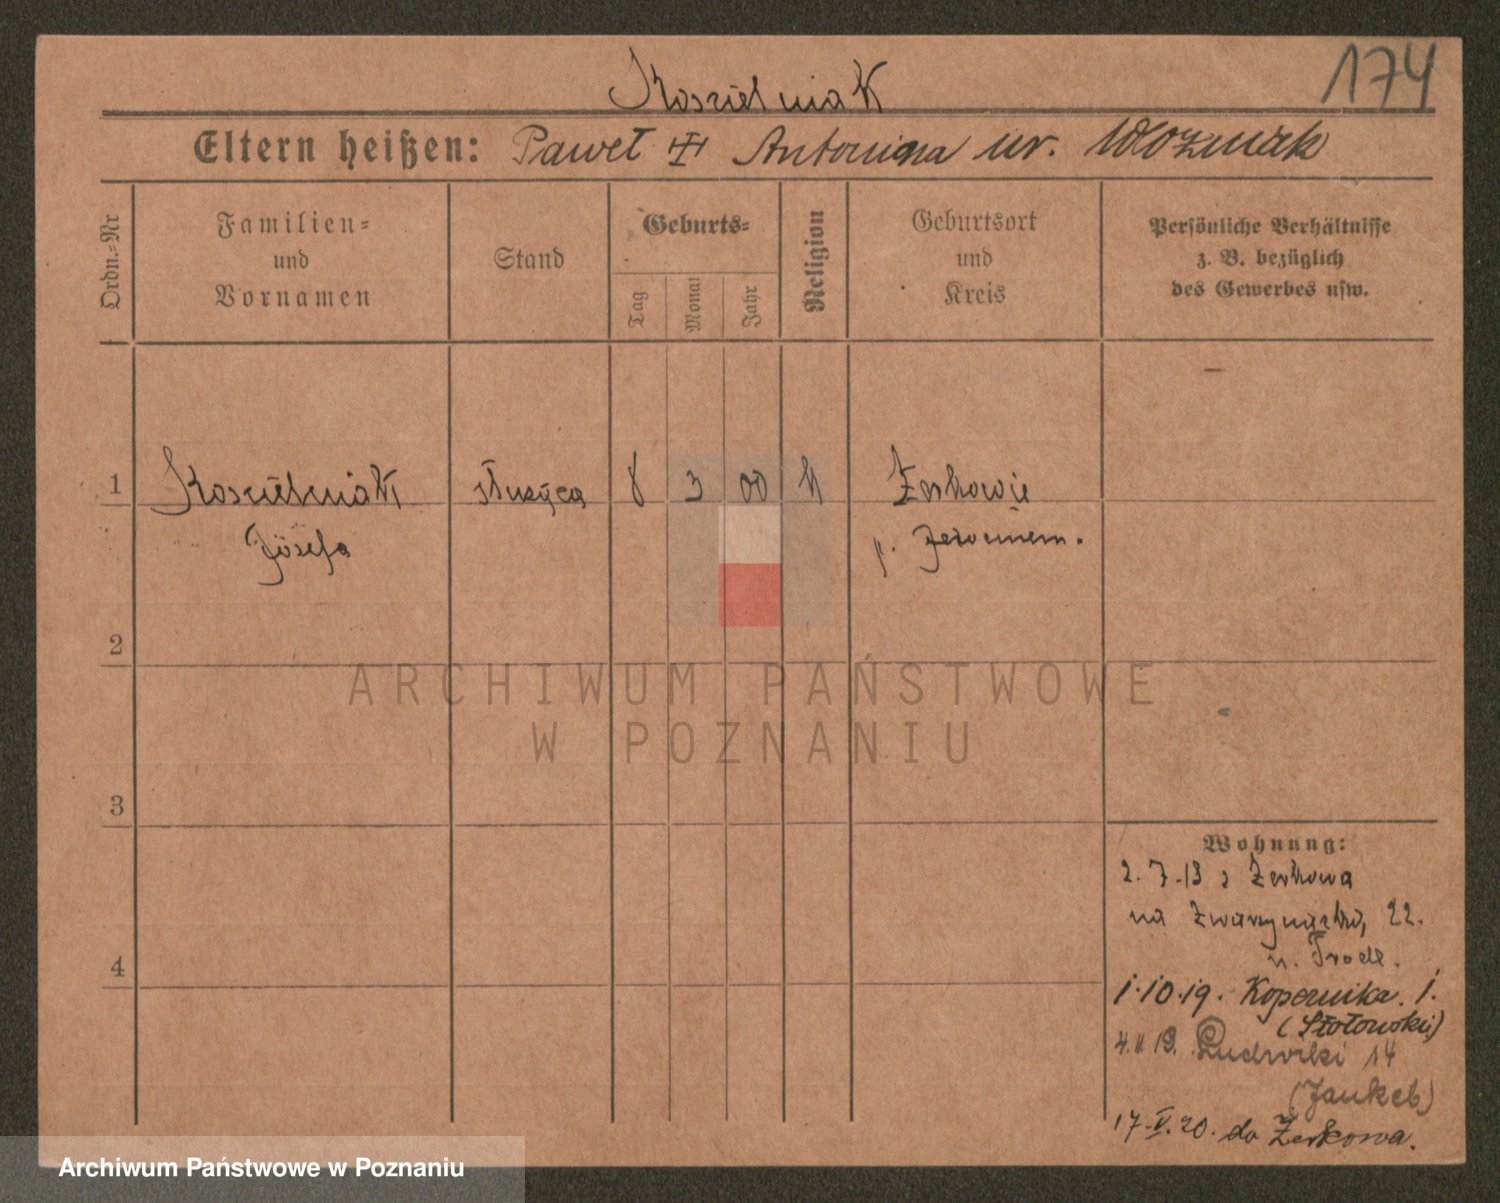 174
Koscielniak
Eltern heißen: Paweł Antonina ur. Wozniak
Ordn.-Nr
Familien-
und
Vornamen
Stand
Geburts-
Tag
Monat
Jahr
Religion
Geburtsort
und
Kreis
Persönliche Verhältnisse
z. B. bezüglich
des Gewerbes usw.
1
Koscielniak służąca 8 3 00 K Żerkowie
Józefa
p.
2
3
4
ARCHIWUM PAŃSTWOWE
W POZNANIU
Wohnung:
2.7.19 z Zerkowa
na 22.
1.10.19. Kopernika. 1.
(Stołowski)
4.11 19. Ludwiki 14
17.V.20. do Żerkowa.
Archiwum Państwowe w Poznaniu